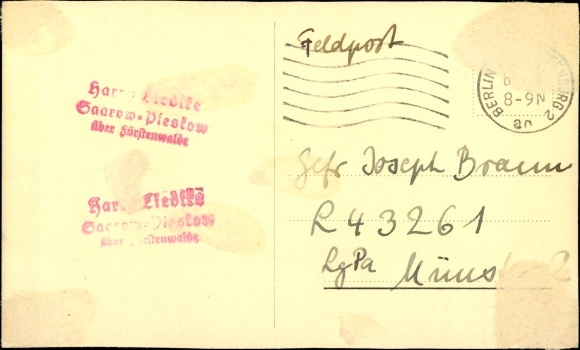 Harry Liedtke
Saarow-Pieskow
über Fürstenwalde
Harry Liedtke
Saarow-Pieskow
über Fürstenwalde
Feldpost
BERLIN
8-9N
an
2
Gefr Joseph Braun
L 43261
LgPa Münster 2